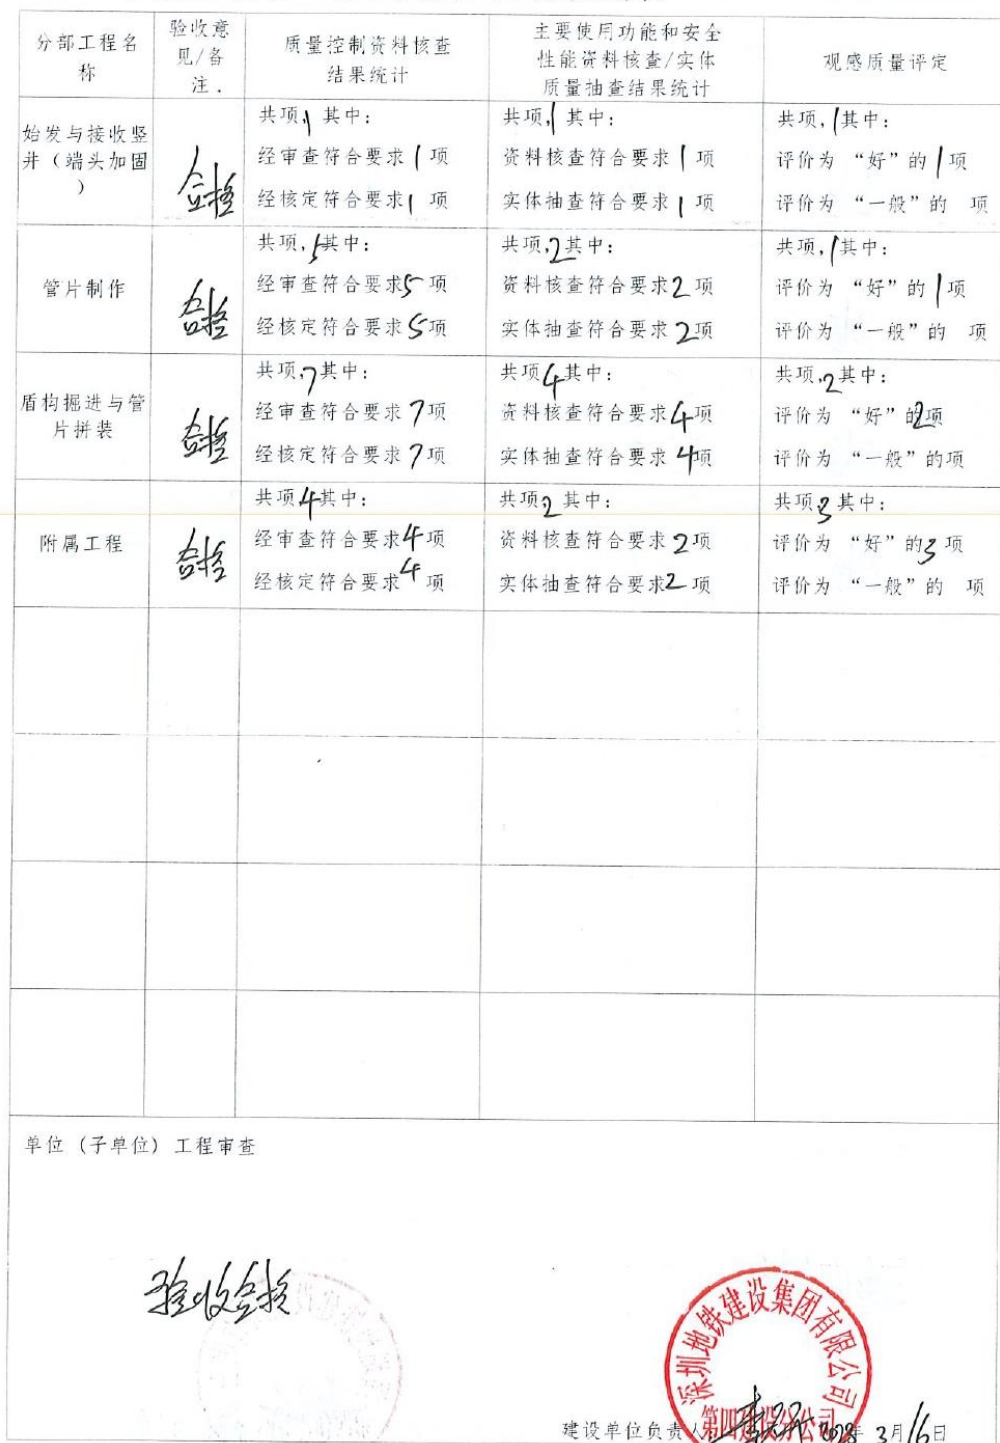 分部工程名
称
验收意
见/备
注.
质量控制资料核查
结果统计
主要使用功能和安全
性能资料核查/实体
质量抽查结果统计
观感质量评定
始发与接收竖
井（端头加固
）
合格
共项,1 其中:
经审查符合要求1项
经核定符合要求1项
共项,1 其中:
资料核查符合要求1项
实体抽查符合要求1项
共项,1其中:
评价为 “好”的1项
评价为 “一般”的 项
管片制作
合格
共项,5其中:
经审查符合要求5项
经核定符合要求5项
共项,2其中:
资料核查符合要求2项
实体抽查符合要求2项
共项,1其中:
评价为 “好”的1项
评价为 “一般”的 项
盾构掘进与管
片拼装
合格
共项,7其中:
经审查符合要求7项
经核定符合要求7项
共项4其中:
资料核查符合要求4项
实体抽查符合要求4项
共项,2其中:
评价为 “好”的2项
评价为 “一般”的项
附属工程
合格
共项4其中:
经审查符合要求4项
经核定符合要求4项
共项,2其中:
资料核查符合要求2项
实体抽查符合要求2项
共项3其中:
评价为 “好”的3项
评价为 “一般”的 项
单位（子单位）工程审查
验收合格
深圳地铁建设集团有限公司
第四建设分公司
建设单位负责人
年3月16日